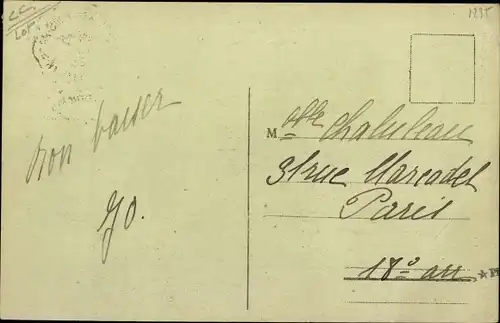 CC
LOT
1235
Bon baiser
Jo.
Melle Chaluleau
31 rue Marcadet
Paris
18° arr